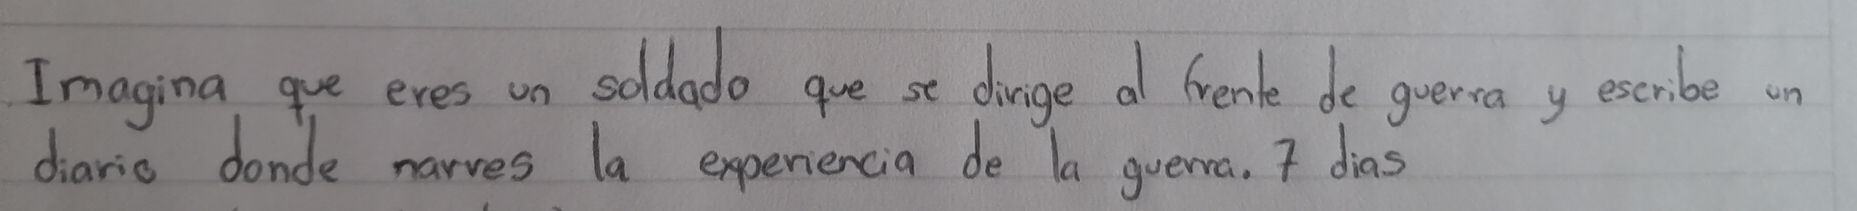 Imagina que eres un soldado que se dirige al frente de guerra y escribe un
diario donde narres la experiencia de la guerra. 7 dias